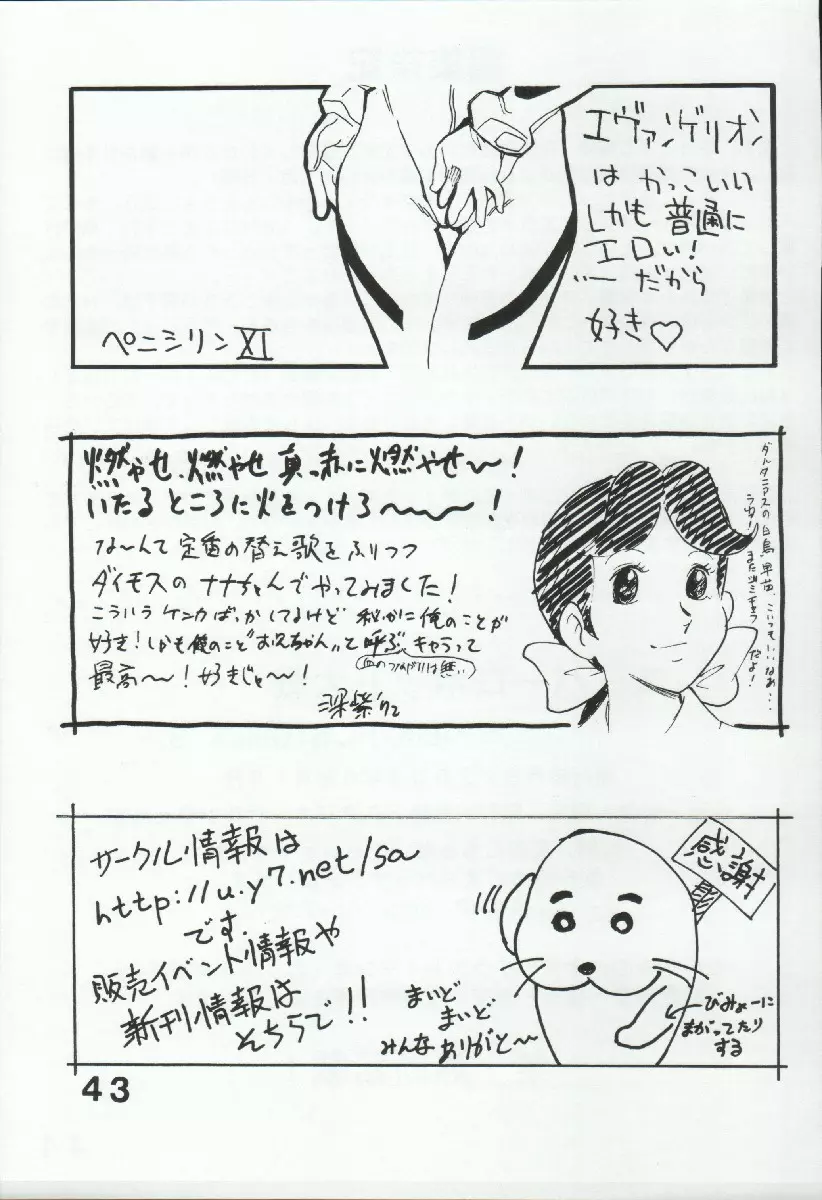 エヴァンゲリオン
は かっこいい
しかも 普通に
エロい!
…… だから
好き♡
ペニシリンXI
燃やせ、燃やせ 真っ赤に燃やせ〜!
いたるところに火をつけろ〜〜〜!
な〜んて 定番の替え歌をふりつつ
ダイモスの ナナちゃんで やってみました!
こういう ケンカばっかしてるけど 秘かに俺のことが
好き! しかも俺のこと"お兄ちゃん"って 呼ぶ、キャラって
(血のつながりは無い)
最高〜〜! 好きじゃ〜〜!
深紫
ダルタニアスの白鳥早苗、こいつもいいなあ…
まだ
だよ!
サークル情報は
http://u.y7.net/sa
です.
販売イベント情報や
新刊情報は
そちらで!!
感謝
まいど
まいど
みんな ありがと〜
びみょーに
まがってたり
する
43